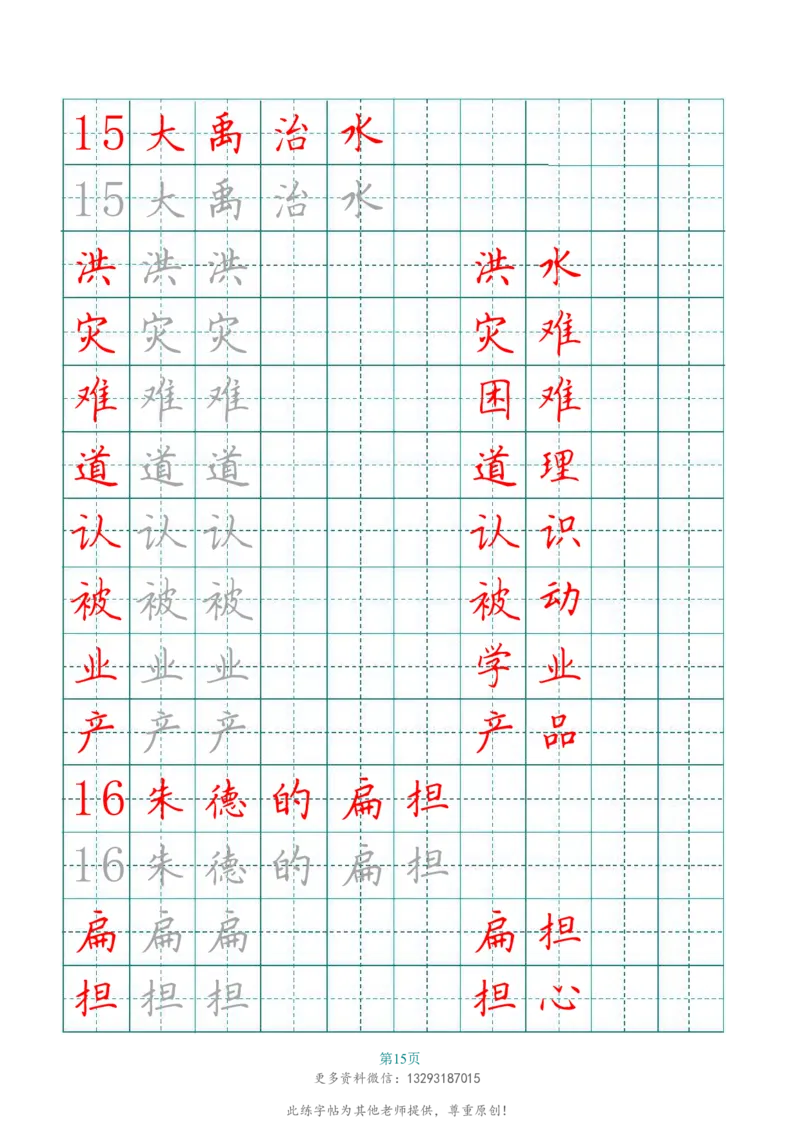 15大禹治水
15大禹治水
洪洪洪 洪水
灾灾灾 灾难
难难难 困难
道道道 道理
认认认 认识
被被被 被动
业业业 学业
产产产 产品
16朱德的扁担
16朱德的扁担
扁扁扁 扁担
担担担 担心
第15页
更多资料微信：13293187015
此练字帖为其他老师提供，尊重原创！